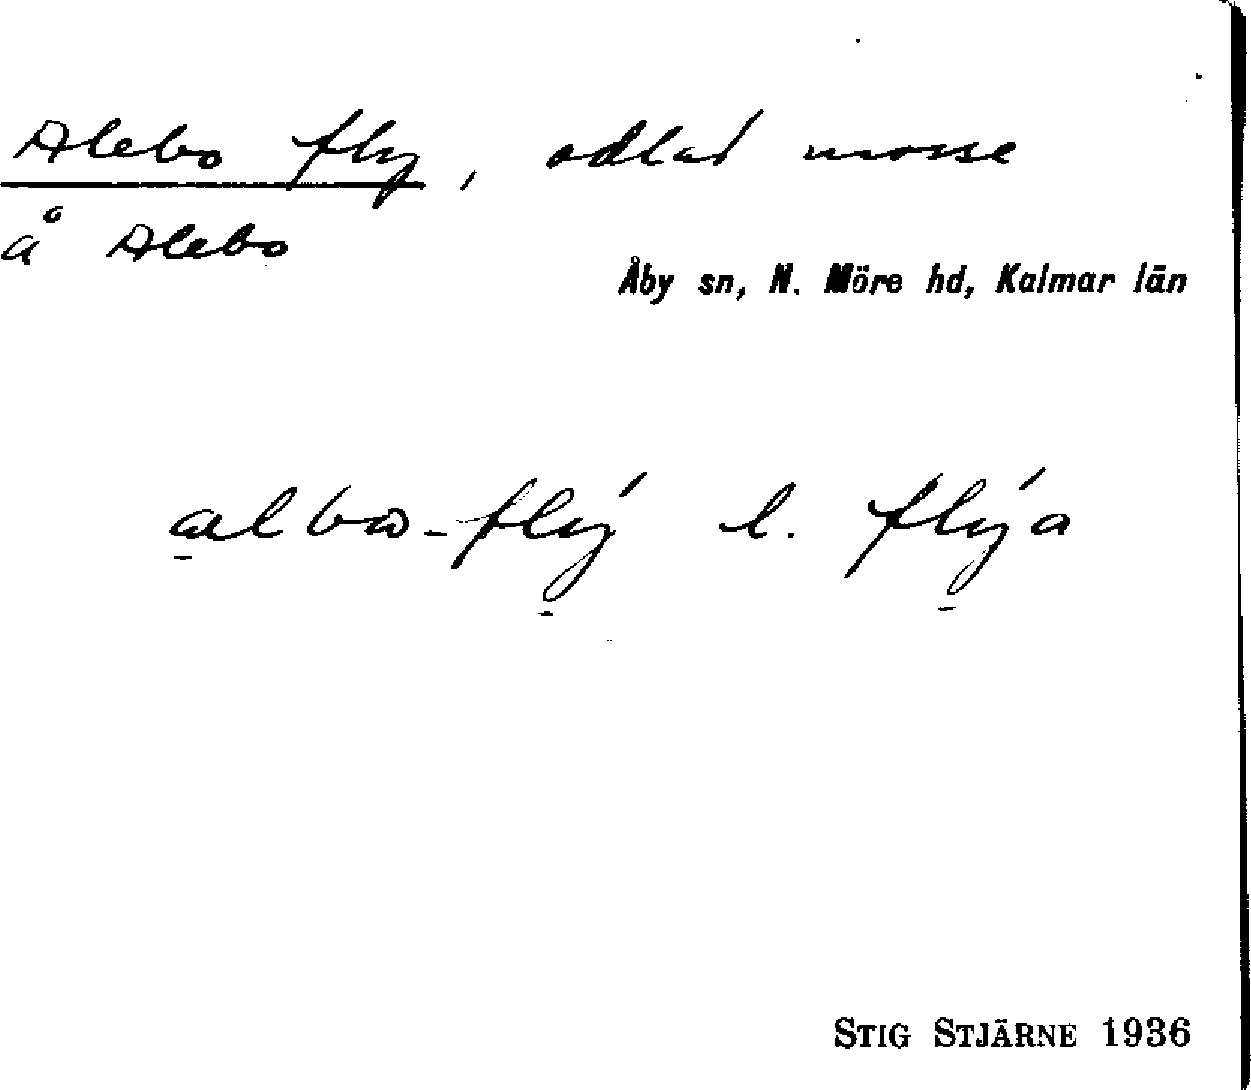 Alebo fly, odlad mosse
å Alebo
Åby sn, N. Möre hd, Kalmar län
albω-flẏ́ l. flẏ́a
STIG STJÄRNE 1936